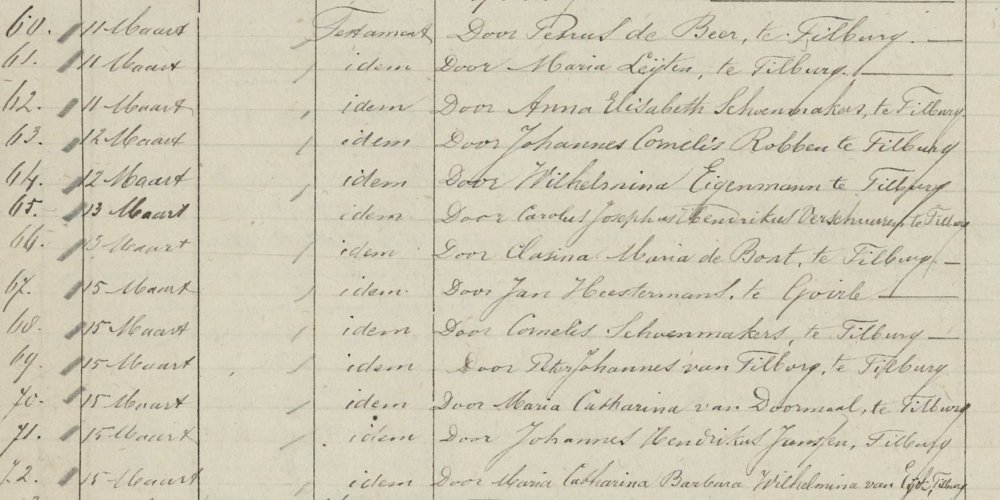 60. 11 Maart Testament Door Petrus de Beer, te Tilburg.
61. 11 Maart idem Door Maria Leijten, te Tilburg.
62. 11 Maart idem Door Anna Elisabeth Schoenmakers, te Tilburg.
63. 12 Maart idem Door Johannes Cornelis Robben te Tilburg
64. 12 Maart idem Door Wilhelmina Eigenmann te Tilburg
65. 13 Maart idem Door Carolus Josephus Hendrikus Verschuuren te Tilburg
66. 13 Maart idem Door Clasina Maria de Bont, te Tilburg.
67. 15 Maart idem Door Jan Heestermans, te Goirle
68. 15 Maart idem Door Cornelis Schoenmakers, te Tilburg
69. 15 Maart idem Door Peter Johannes van Tilborg, te Tilburg.
70. 15 Maart idem Door Maria Catharina van Doormaal, te Tilburg
71. 15 Maart idem Door Johannes Hendrikus Janssen, Tilburg
72. 15 Maart idem Door Maria Catharina Barbara Wilhelmina van Tilburg